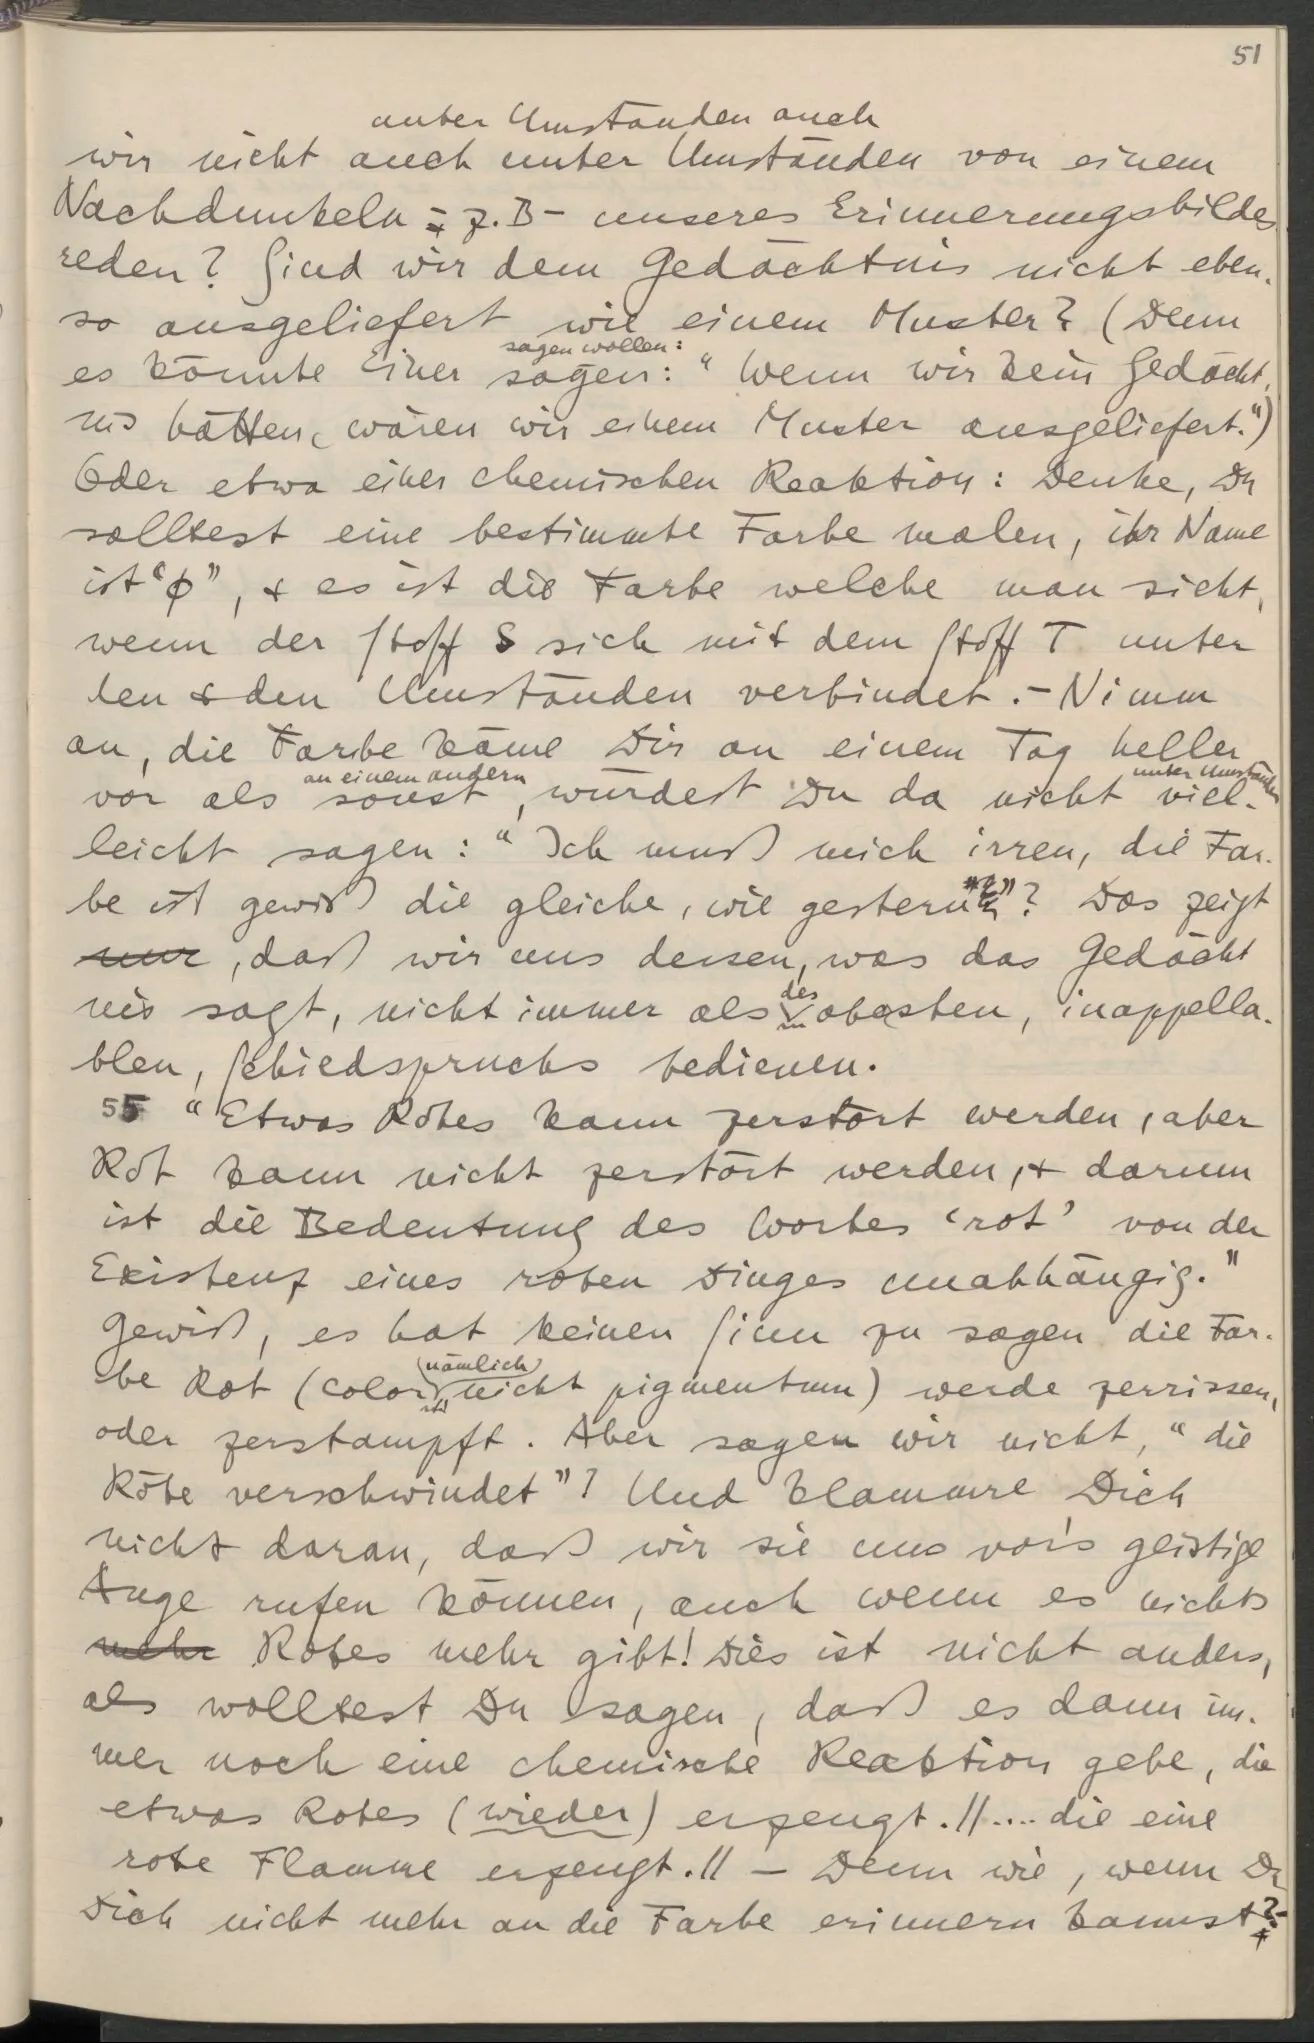 51
unter Umständen auch
wir nicht auch unter Umständen von einem
Nachdunkeln – z.B – unseres Erinnerungsbildes
reden? Sind wir dem Gedächtnis nicht eben-
so ausgeliefert wie einem Muster? (Denn
sagen wollen:
es könnte Einer sagen: “Wenn wir kein Gedächt-
nis hätten, wären wir einem Muster ausgeliefert.”)
Oder etwa einer chemischen Reaktion: Denke, Du
solltest eine bestimmte Farbe malen, ihr Name
ist “φ”, & es ist die Farbe welche man sieht,
wenn der Stoff S sich mit dem Stoff T unter
den & den Umständen verbindet. – Nimm
an, die Farbe käme Dir an einem Tag heller
an einem andern unter Umständen
vor als sonst, würdest Du da nicht viel-
leicht sagen: “Ich muß mich irren, die Far-
be ist gewiß die gleiche, wie gestern”? Das zeigt
nur, daß wir uns dessen, was das Gedächt
des
nis sagt, nicht immer als obersten, inappella-
blen, Schiedspruchs bedienen.
55 “Etwas Rotes kann zerstört werden, aber
Rot kann nicht zerstört werden, & darum
ist die Bedeutung des Wortes ‘rot’ von der
Existenz eines roten Dinges unabhängig.”
Gewiß, es hat keinen Sinn zu sagen die Far-
(nämlich)
be Rot (color, nicht pigmentum) werde zerrissen,
oder zerstampft. Aber sagen wir nicht, “die
Röte verschwindet”? Und klammre Dich
nicht daran, daß wir sie uns vor's geistige
Auge rufen können, auch wenn es nichts
mehr Rotes mehr gibt! Dies ist nicht anders,
als wolltest Du sagen, daß es dann im-
mer noch eine chemische Reaktion gebe, die
etwas Rotes (wieder) erzeugt. // .... die eine
rote Flamme erzeugt. // – Denn wie, wenn Du
Dich nicht mehr an die Farbe erinnern kannst? –